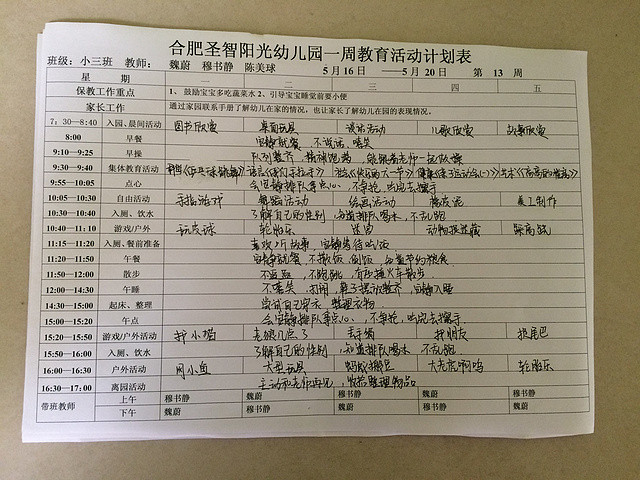 合肥圣智阳光幼儿园一周教育活动计划表
班级：小三班 教师： 魏蔚 穆书静 陈美球 5月16日 ——5月20日 第 13 周
星 期 一 二 三 四 五
保教工作重点 1、鼓励宝宝多吃蔬菜水 2、引导宝宝睡觉前要小便
家长工作 通过家园联系手册了解幼儿在家的情况，也让家长了解幼儿在园的表现情况。
7：30—8:40 入园、晨间活动 图书欣赏 桌面玩具 谈话活动 儿歌欣赏 故事欣赏
8:00 早餐 安静就餐，不说话、嘻笑
9:10—9:25 早操 队列整齐，精神饱满，能跟着老师一起做操
9:30—9:40 集体教育活动
9:55—10:05 点心 会安静排队拿点心，不争抢，吃完去擦手
10:05—10:30 自由活动 手指游戏 舞蹈活动 绘画活动 橡皮泥 美工制作
10:30—10:40 入厕、饮水 了解自己的性别，知道排队喝水，不乱跑
10:40—11:10 游戏/户外 玩皮球 轮胎乐 动物捉迷藏
11:15—11:20 入厕、餐前准备 喜欢听故事，安静等待吃饭
11:20—11:50 午餐 安静就餐，不撒饭、倒饭，知道节约粮食
11:50—12:00 散步 不追逐，不跑跳，有秩序
12:00—14:30 午睡 不嘻笑、打闹，鞋子摆放整齐，安静入睡
14:30—15:00 起床、整理 尝试自己穿衣，整理衣物
15:00—15:20 午点 会安静排队拿点心，不争抢，吃完去擦手
15:20—15:50 游戏/户外活动 老狼几点了 丢手绢 找朋友 捉尾巴
15:50—16:00 入厕、饮水 了解自己的性别，知道排队喝水，不乱跑
16:00—16:30 户外活动 网小鱼 大型玩具 蚂蚁搬豆 轮胎乐
16:30—17:00 离园活动 主动和老师再见，收拾整理物品
带班教师 上午 穆书静 魏蔚 穆书静 穆书静 魏蔚
下午 魏蔚 穆书静 魏蔚 魏蔚 穆书静